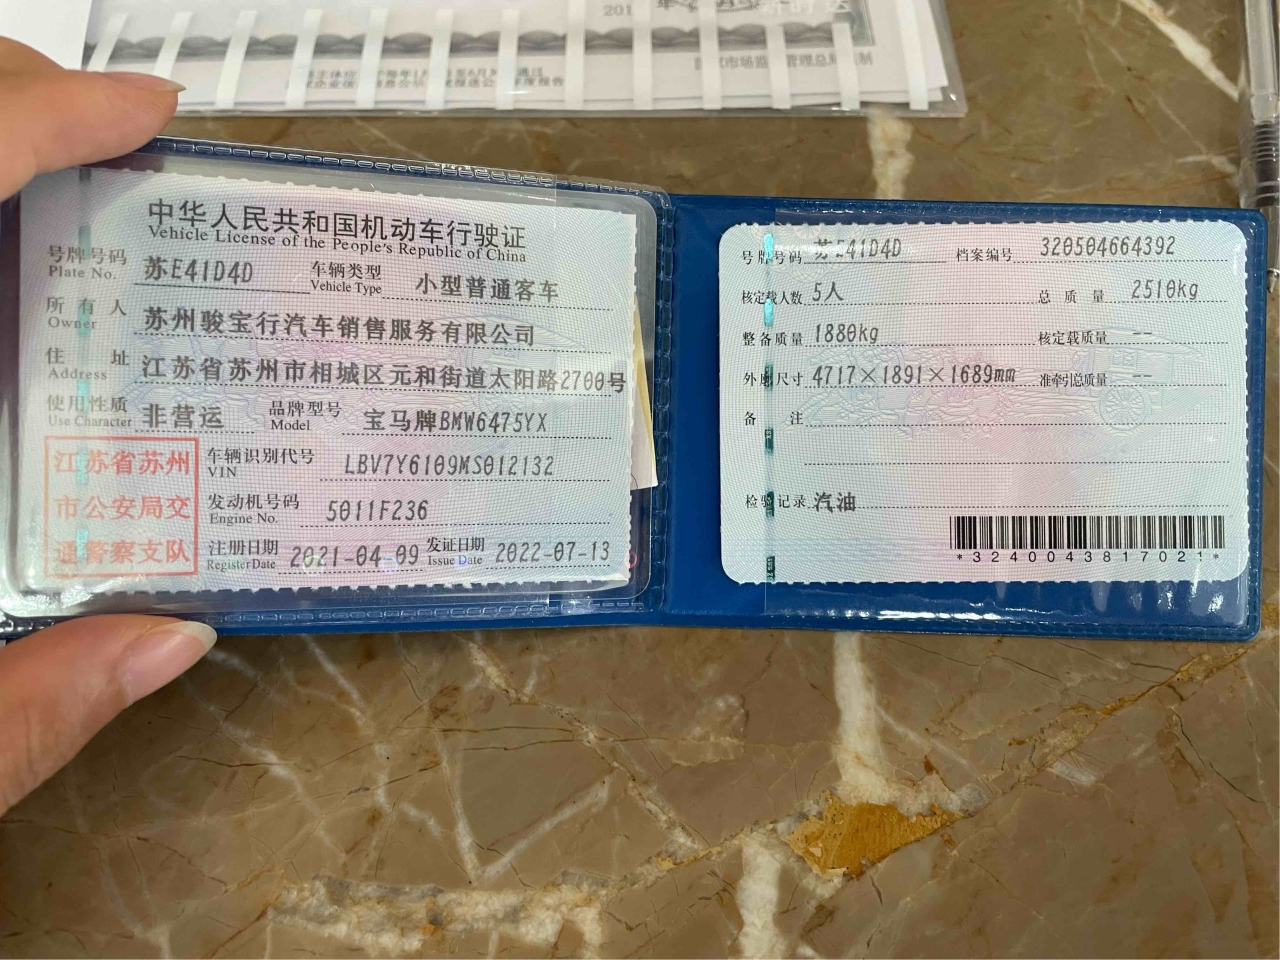 201
中华人民共和国机动车行驶证
Vehicle License of the People's Republic of China
号牌号码 苏E41D4D 车辆类型 小型普通客车
Plate No. Vehicle Type
所有人 苏州骏宝行汽车销售服务有限公司
Owner
住址 江苏省苏州市相城区元和街道太阳路2700号
Address
使用性质 非营运 品牌型号 宝马牌BMW6475YX
Use Character Model
江苏省苏州
市公安局交
通警察支队
车辆识别代号 LBV7Y6109MS012132
VIN
发动机号码 5011F236
Engine No.
注册日期 2021-04-09 发证日期 2022-07-13
Register Date Issue Date
号牌号码 苏E41D4D 档案编号 320504664392
核定载人数 5人 总质量 2510kg
整备质量 1880kg 核定载质量 --
外廓尺寸 4717×1891×1689mm 准牵引总质量 --
备注
检验记录 汽油
*3240043817021*